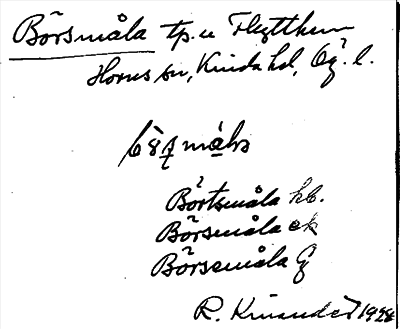 Börsmåla tp. u Flyttkum
Horns sn, Kinda hd, Ög. l.
Börtsmåla hb.
Börsmåla ek
Börsemåla
R. Kinander 1928